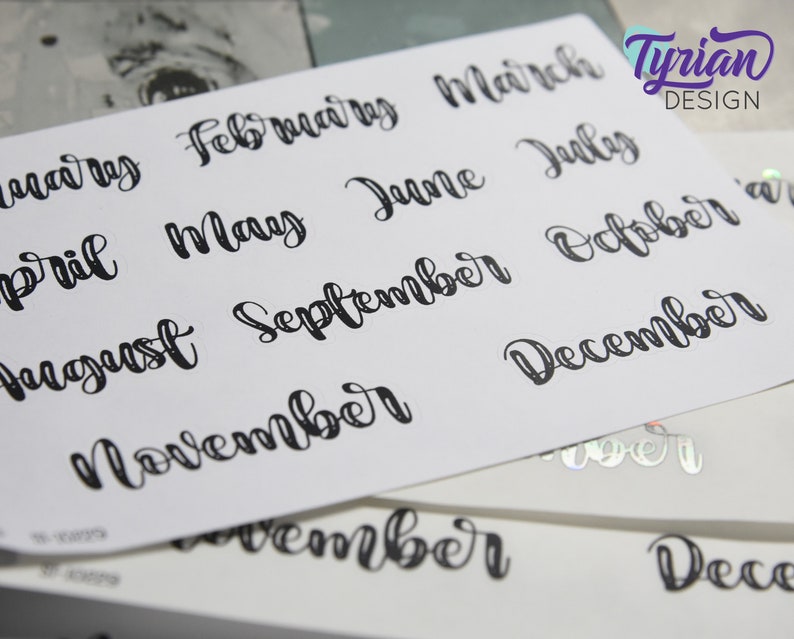 Tyrian
DESIGN
nuary February March
pril May June July
August September October
November December
mber
November Dece